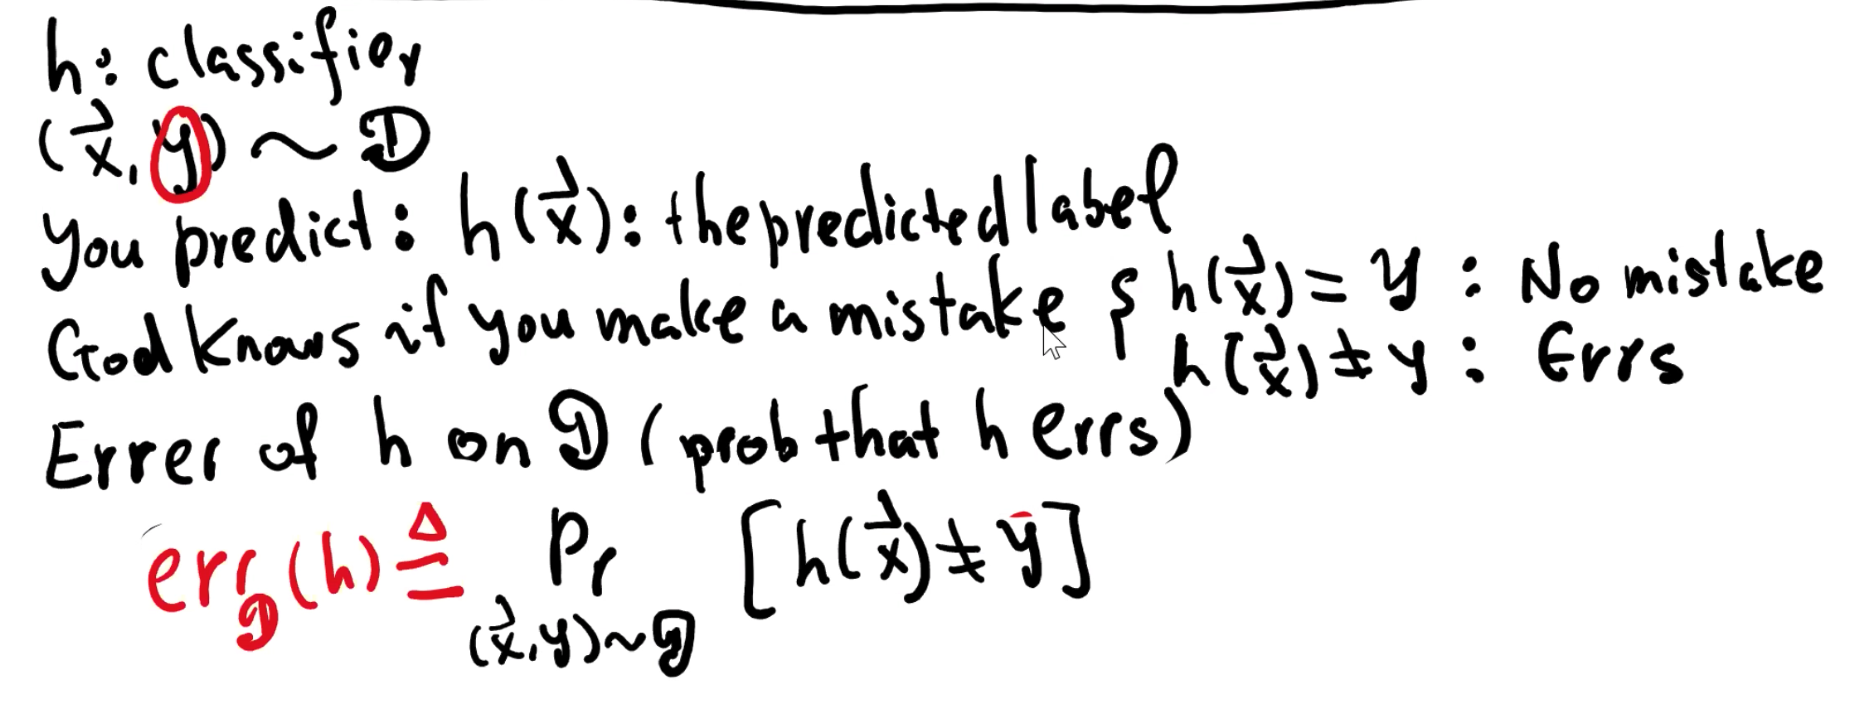 h: classifier
(x⃗, y) ~ D
You predict: h(x⃗): the predicted label
God knows if you make a mistake { h(x⃗) = y : No mistake
h(x⃗) ≠ y : Errs
Errer of h on D (prob that h errs)
err_D(h) ≜ Pr [h(x⃗) ≠ y]
(x⃗, y) ~ D